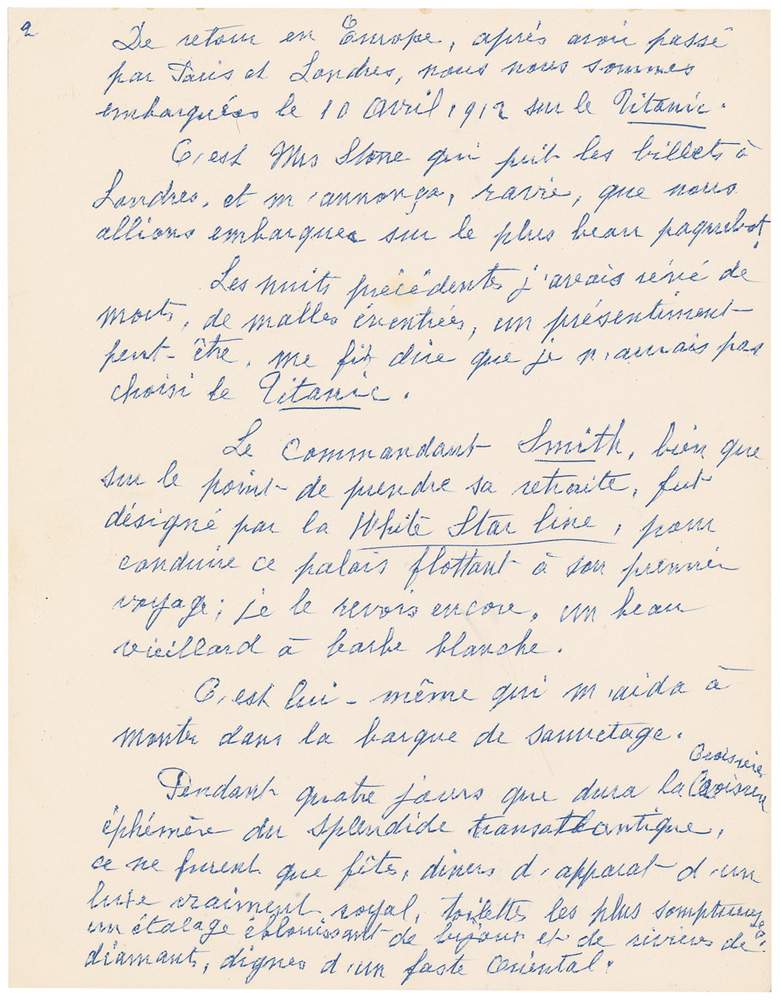 2
De retour en Europe, après avoir passé
par Paris et Londres, nous nous sommes
embarquées le 10 Avril 1912 sur le Titanic.
C'est Mrs Stone qui prit les billets à
Londres, et m'annonça, ravie, que nous
allions embarquer sur le plus beau paquebot.
Les nuits précédentes j'avais rêvé de
morts, de malles éventrées, un présentiment
peut-être, me fit dire que je n'aurais pas
choisi le Titanic.
Le Commandant Smith, bien que
sur le point de prendre sa retraite, fut
désigné par la White Star line, pour
conduire ce palais flottant à son premier
voyage; je le revois encore, un beau
vieillard à barbe blanche.
C'est lui-même qui m'aida à
monter dans la barque de sauvetage.
Croisière
Pendant quatre jours que dura la
éphémère du splendide transatlantique,
ce ne furent que fêtes, diners d'apparat d'un
luxe vraiment royal, toilettes les plus somptueuses,
un étalage éblouissant de bijoux et de rivières de
diamants, dignes d'un faste Oriental.